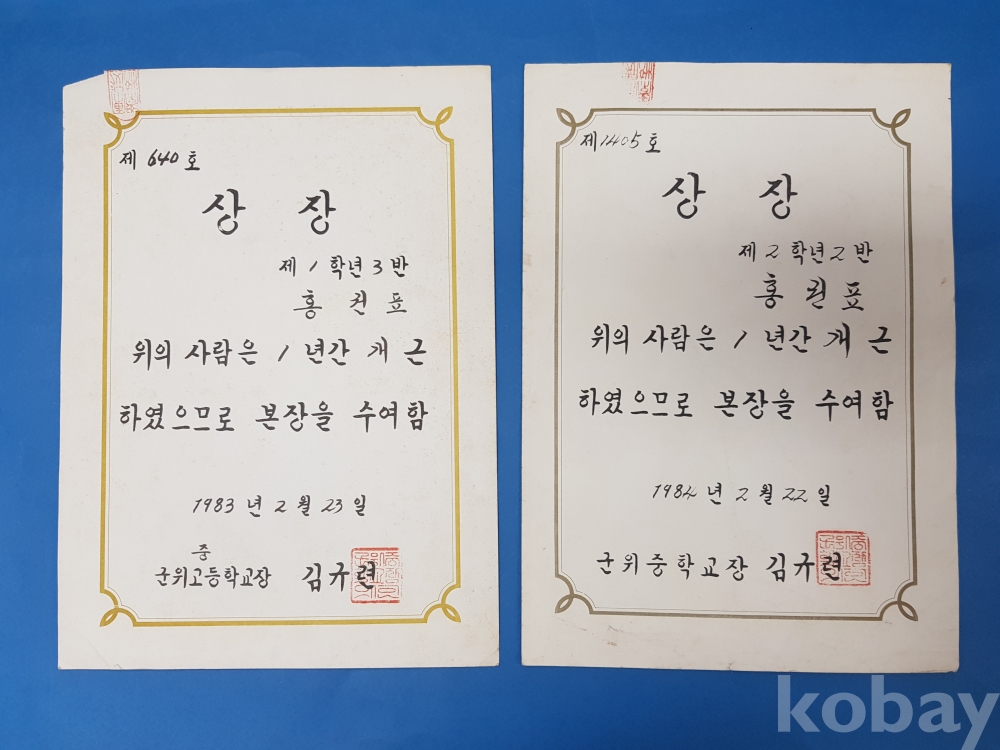 제 640 호
상 장
제 1 학년 3 반
홍 권 표
위의 사람은 1 년간 개 근
하였으므로 본장을 수여함
1983 년 2 월 23 일
중
군위고등학교장 김규련
제1405 호
상 장
제 2 학년 2 반
홍 권 표
위의 사람은 1 년간 개 근
하였으므로 본장을 수여함
1984 년 2 월 22 일
군위중학교장 김규련
kobay